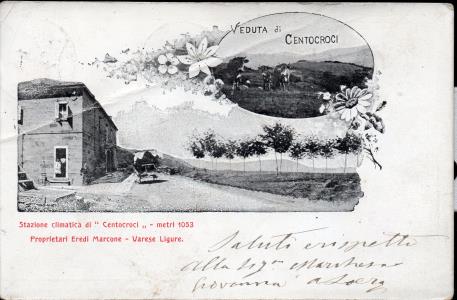 VEDUTA di
CENTOCROCI
Stazione climatica di " Centocroci „ - metri 1053
Proprietari Eredi Marcone - Varese Ligure.
Saluti e rispetto
Alla Sigra Marchesa
Giovanna